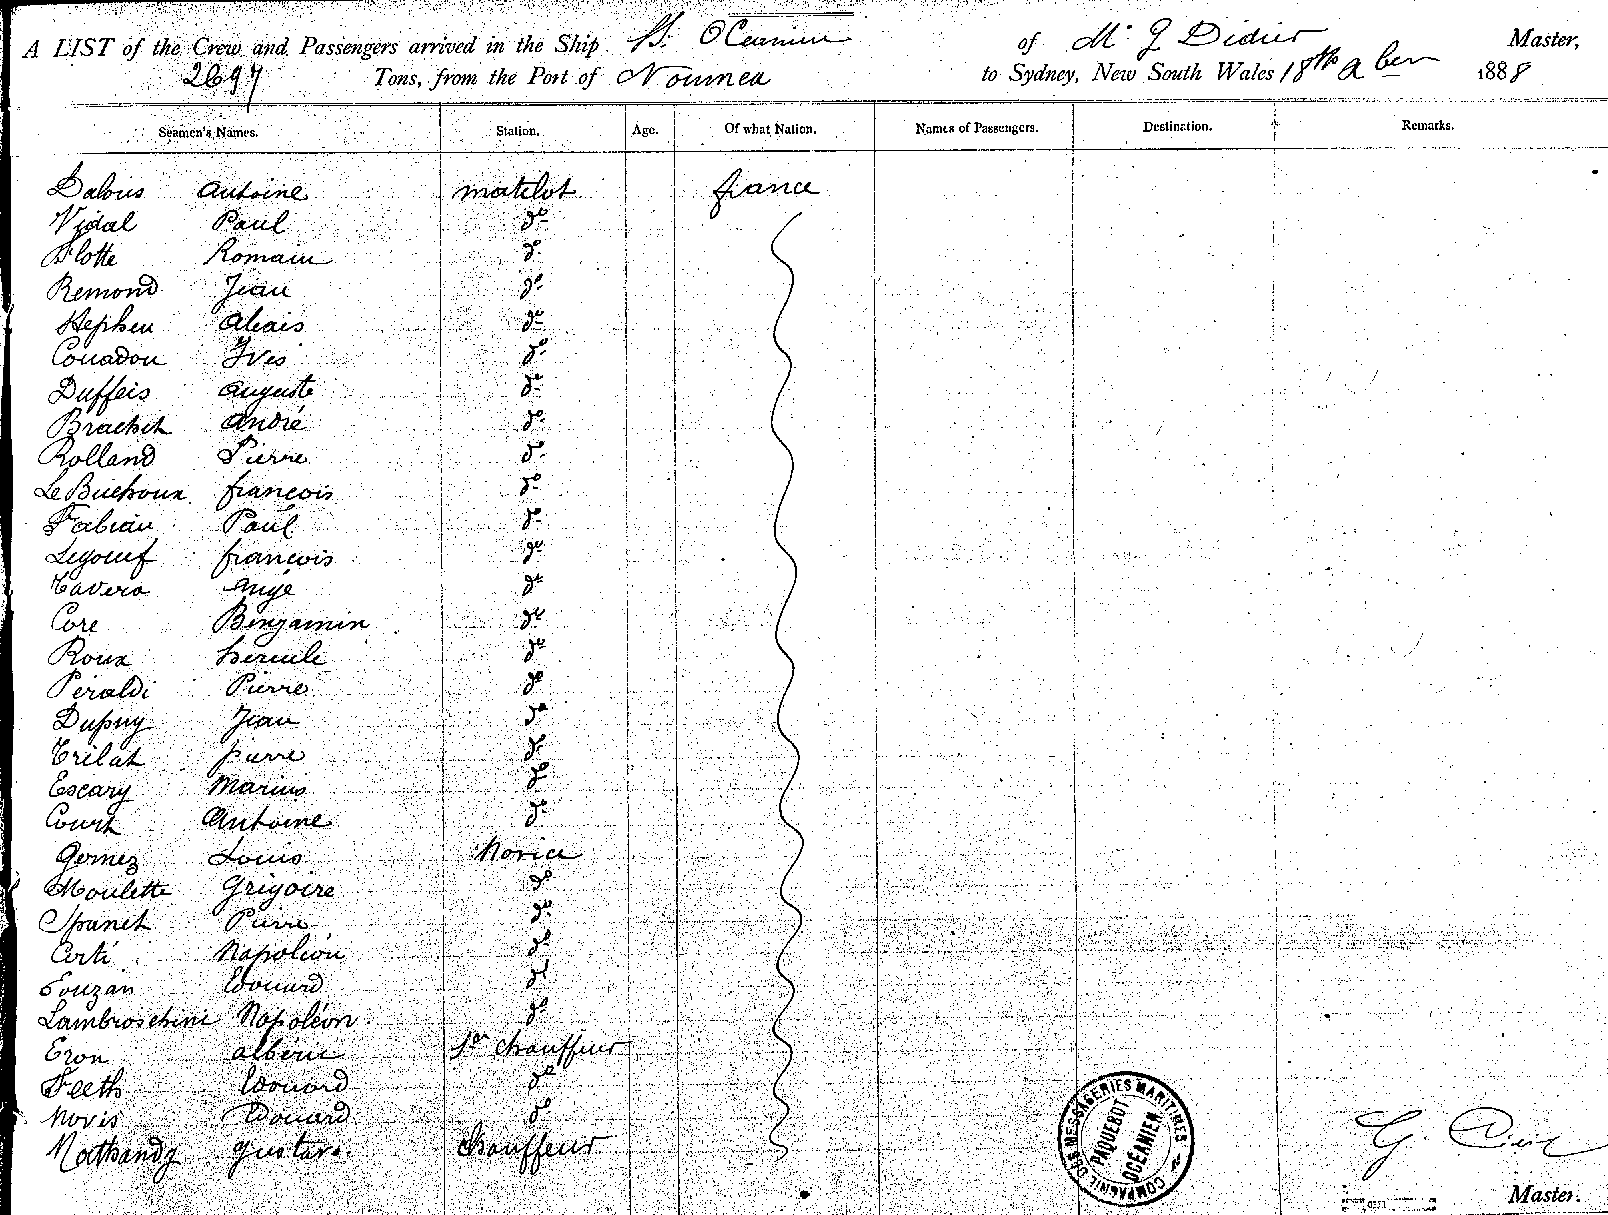 A LIST of the Crew and Passengers arrived in the Ship St. Océanien of Mr G Didier Master,
2697 Tons, from the Port of Noumea to Sydney, New South Wales 18th 8ber 1888
Seamen's Names. Station. Age. Of what Nation. Names of Passengers. Destination. Remarks.
Dalous Antoine matelot france
Vidal Paul do
Flotte Romain do
Remond Jean do
Stephen Alexis do
Couadou Yves do
Duffeis Auguste do
Brachet André do
Rolland Pierre do
Le Buchoux francois do
Fabian Paul do
Legoeuf francois do
Tavera Ange do
Core Benjamin do
Roux hercule do
Péraldi Pierre do
Dupuy Jean do
Trilat pierre do
Escary Marius do
Court Antoine do
Gomez Louis Novice
Moulette Grégoire do
Spanet Pierre do
Certi Napoléon do
Souzan Edouard do
Lambroschini Napoléon do
Eron alberic 1er chauffeur
Feeth Edouard do
Novis Edouard do
Nathandy Gustave Chauffeur
COMPAGNIE DES MESSAGERIES MARITIMES
PAQUEBOT
OCÉANIEN
G. Didier
Master.